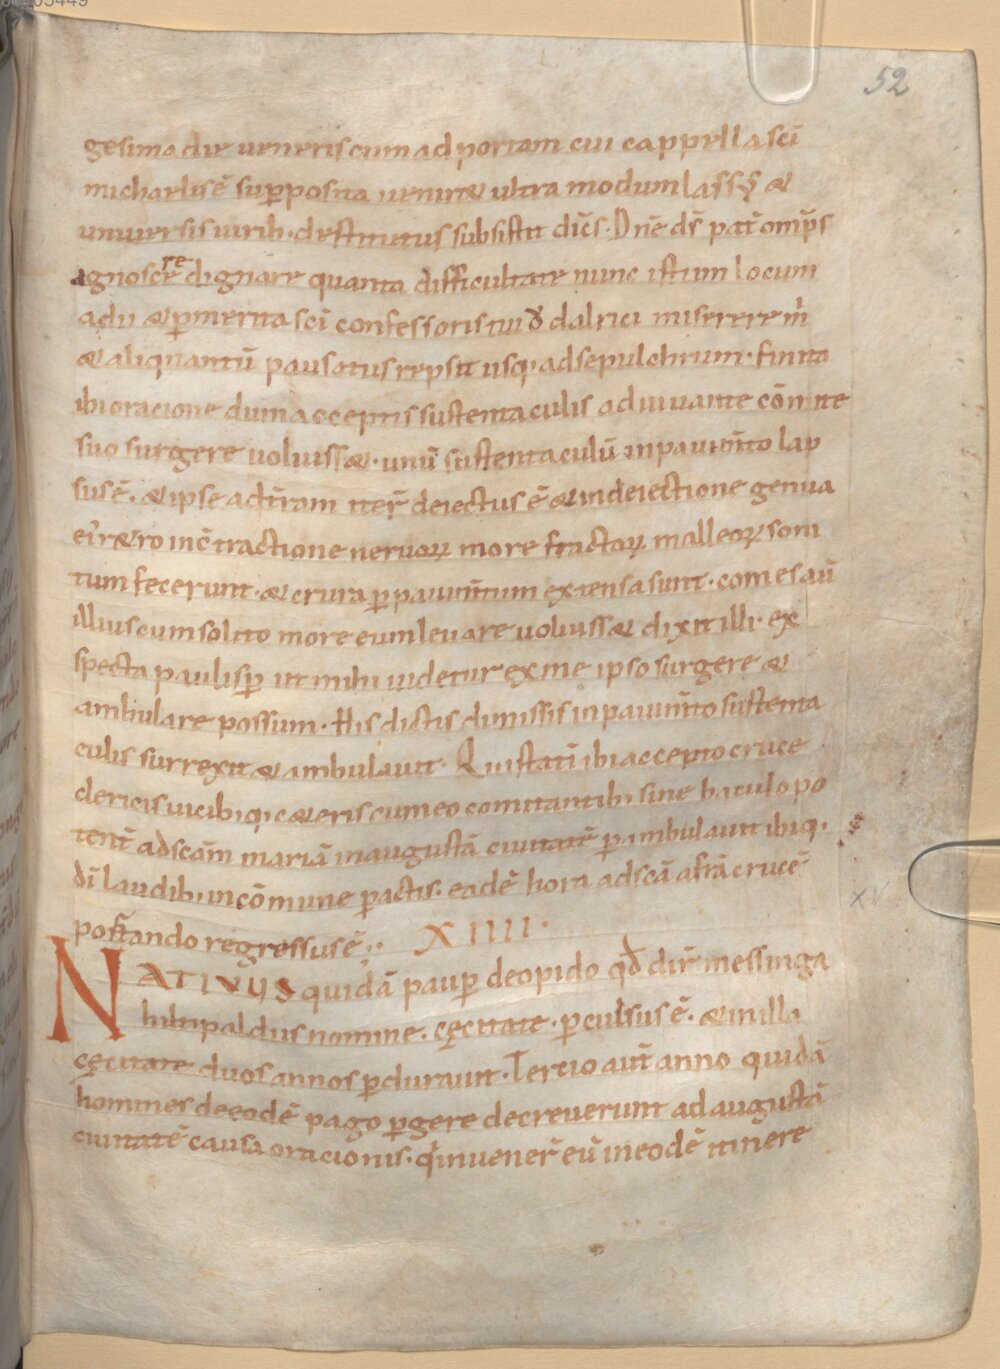 52
gesima die ueneris cum ad portam cui cappella sc̄i
michaelis ē sup̄posita uenir& ultra modum lassus &
uniuersis uirib; destitutus subsistit dic̄s. Dn̄e ds̄ pat̄ omp̄s
agnoscere dignare quanta difficultate nunc istum locum
adii & p̄ merita sc̄i confessoris tui ȣdalrici miserere m̄
& aliquantū pausatus repsit usq; ad sepulchrum. Finita
ibi oracione dum acceptis sustentaculis adiuuante cōmite
suo surgere uoluiss&. unū sustentaculū in pauim̄to lap
sus ē. & ipse ad t̄ram iter̄ deiectus ē & in deiectione genua
ei' retro in c̄tractione neruoꝝ more fractaꝝ malleoꝝ soni
tum fecerunt. & crura p̄ pauim̄tum extensa sunt. comes aū
illius cum solito more eum leuare uoluiss& dixit illi. ex
specta paulisp̄ ut mihi uidetur ex me ipso surgere &
ambulare possum. His dictis dimissis in pauim̄to sustenta
culis surrexit & ambulauit. Qui statī ibi accepto cruce
clericis uicibiq; c&eris cum eo comitantib; sine baculo po
tent̄ ad sc̄am mariā in augustā ciuitatē p̄ambulauit ibiq;
dī laudib; in cōmune p̄actis. eadē hora ad sc̄ā afrā crucē
portando regressus ē.
XIIII.
XV
NATIVUS quidā paup̄ de opido qđ dir̄ messinga
hiltipaldus nomine. cęcitate. p̄culsus ē. & in illa
cęcitate duos annos p̄durauit. Tercio aut̄ anno quidā
homines de eodē pago p̄gere decreuerunt ad augustā
ciuitatē causa oracionis. q̇ inuener̄ eū in eodē itinere